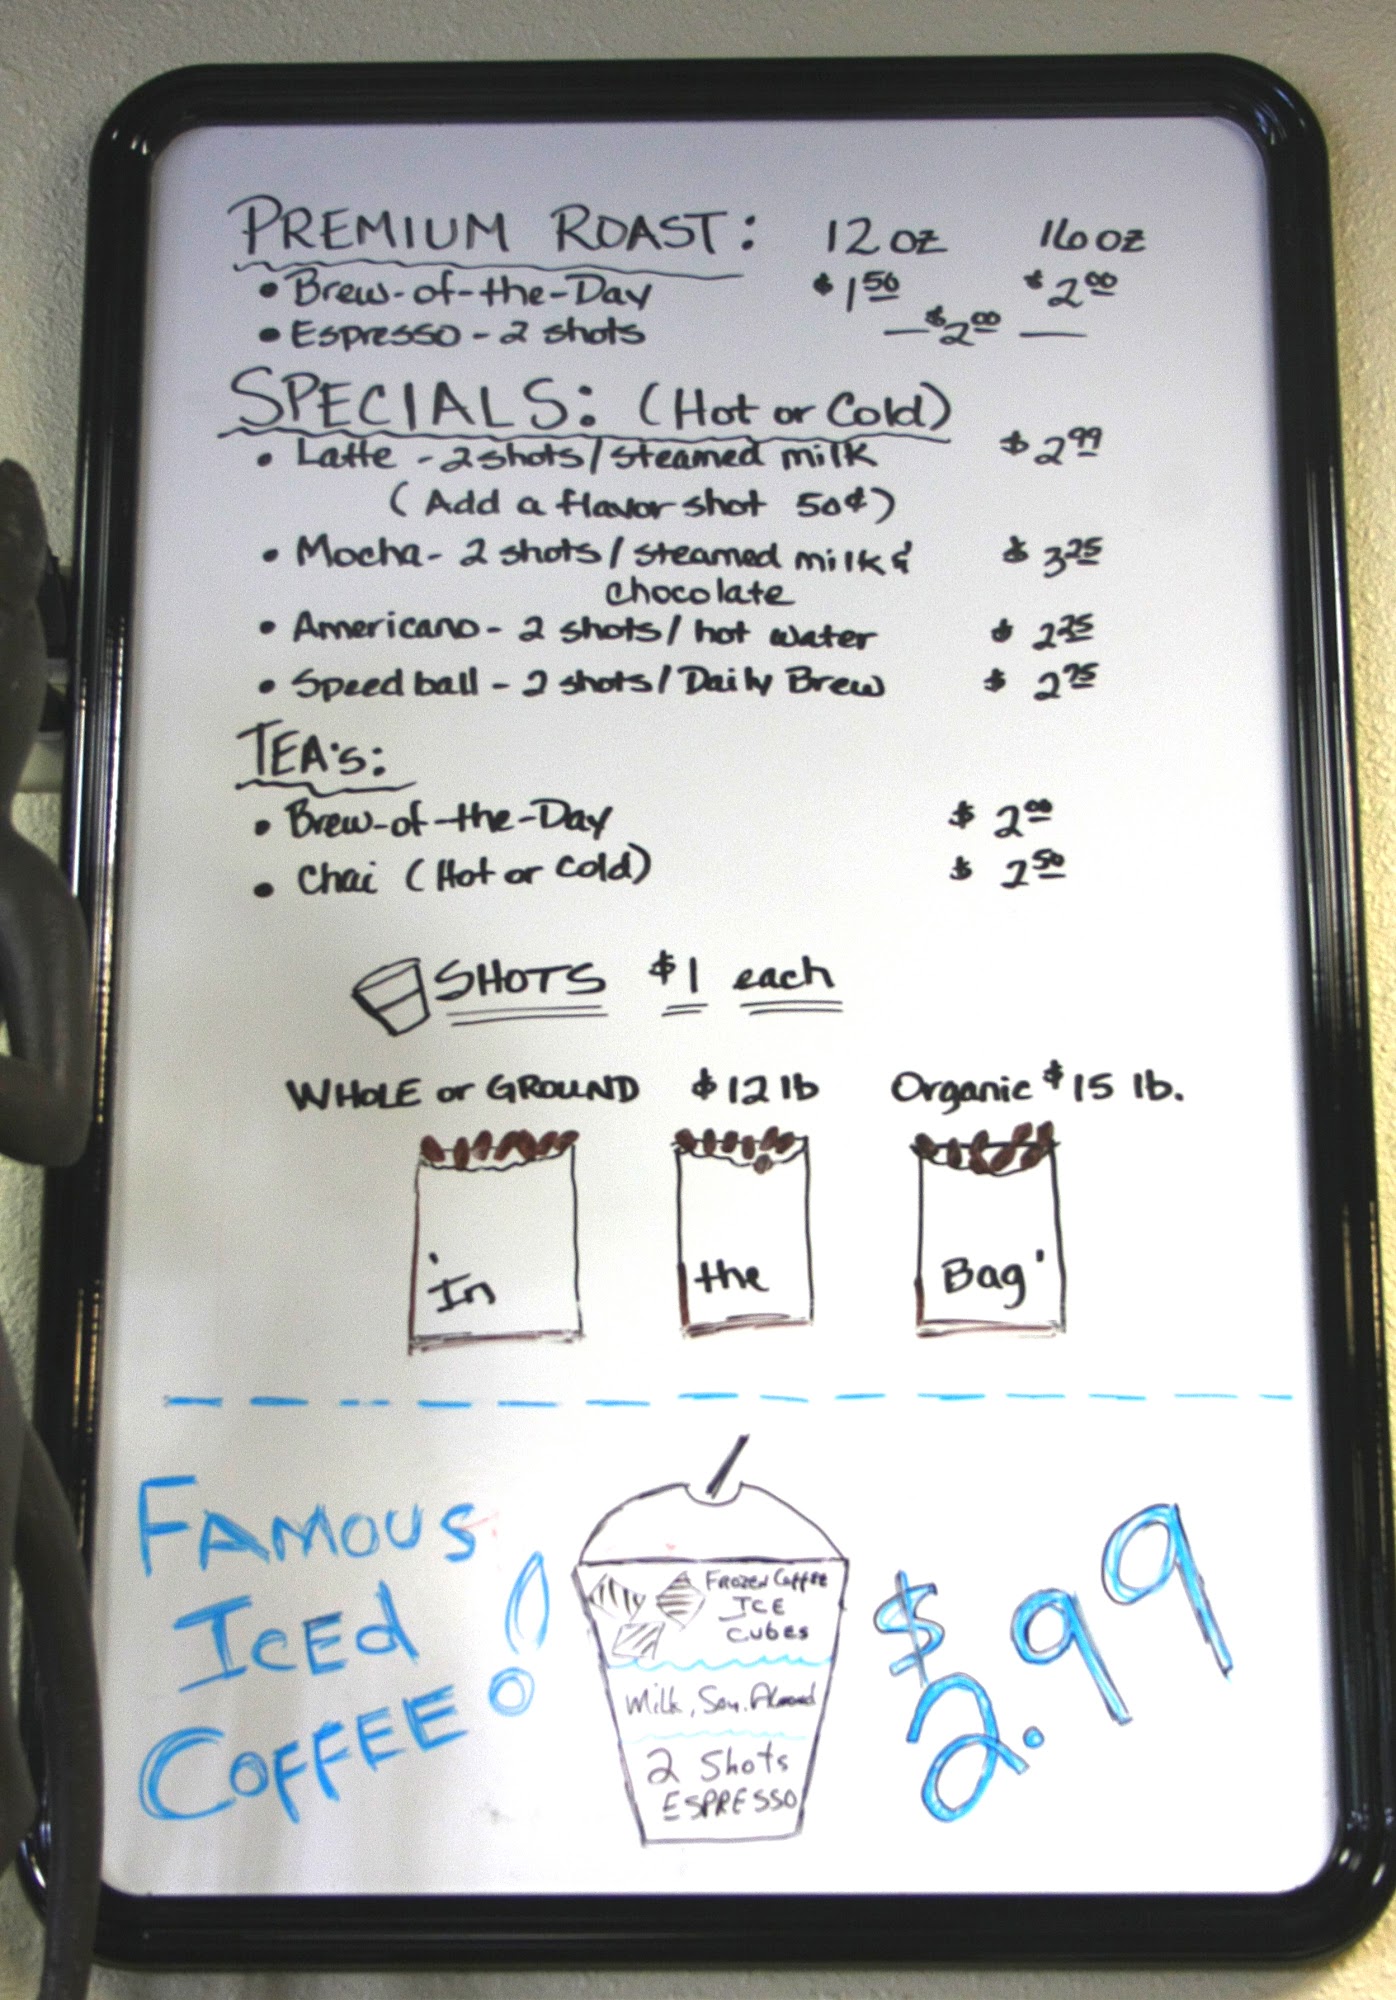 PREMIUM ROAST: 12 oz 16 oz
• Brew-of-the-Day $1.50 $2.00
• Espresso - 2 shots — $2.00 —
SPECIALS: (Hot or Cold)
• Latte - 2 shots/steamed milk $2.99
(Add a flavor shot 50¢)
• Mocha - 2 shots/steamed milk & $3.25
chocolate
• Americano - 2 shots/hot water $2.25
• Speedball - 2 shots/Daily Brew $2.75
TEA'S:
• Brew-of-the-Day $2.00
• Chai (Hot or Cold) $2.50
SHOTS $1 each
WHOLE or GROUND $12 lb Organic $15 lb.
'In the Bag'
FAMOUS
ICED
COFFEE!
FROZEN COFFEE
ICE
CUBES
Milk, Soy, Almond
2 Shots
ESPRESSO
$2.99